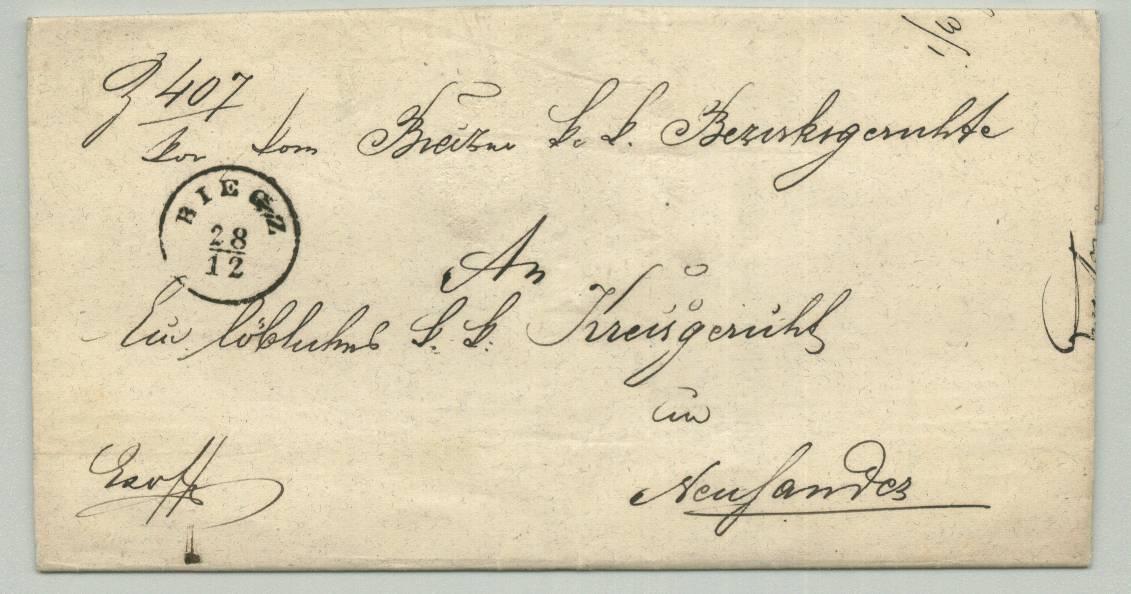 Z 407
Vom Bieczer k. k. Bezirksgerichte
BIECZ
28
12
An
Ein löbliches k. k. Kreisgericht
in
Neusandez
Exoffo